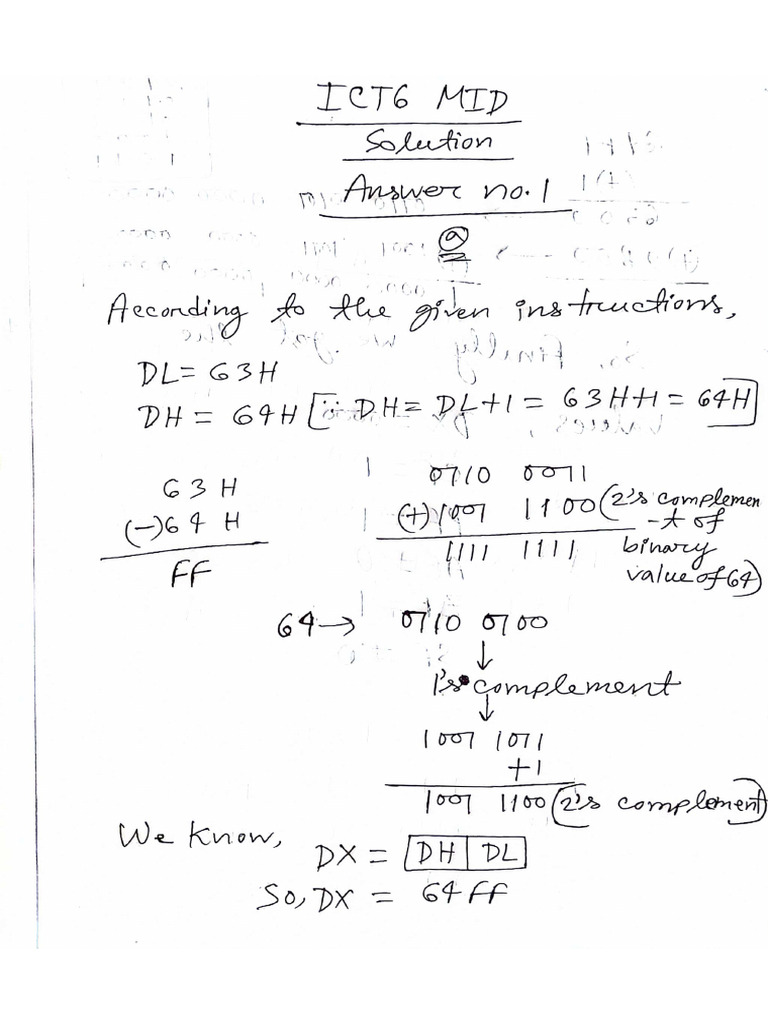 ICT6 MID
Solution
Answer no. 1
a
According to the given instructions,
DL = 63H
DH = 64H [∵ DH = DL+1 = 63H+1 = 64H]
63 H
(-)64 H
FF
0110 0011
(+)1001 1100 (2's complemen
-t of
1111 1111 binary
value of 64)
64 → 0110 0100
↓
1's complement
↓
1001 1011
+1
1001 1100 (2's complement)
We know,
DX = DH DL
So, DX = 64FF